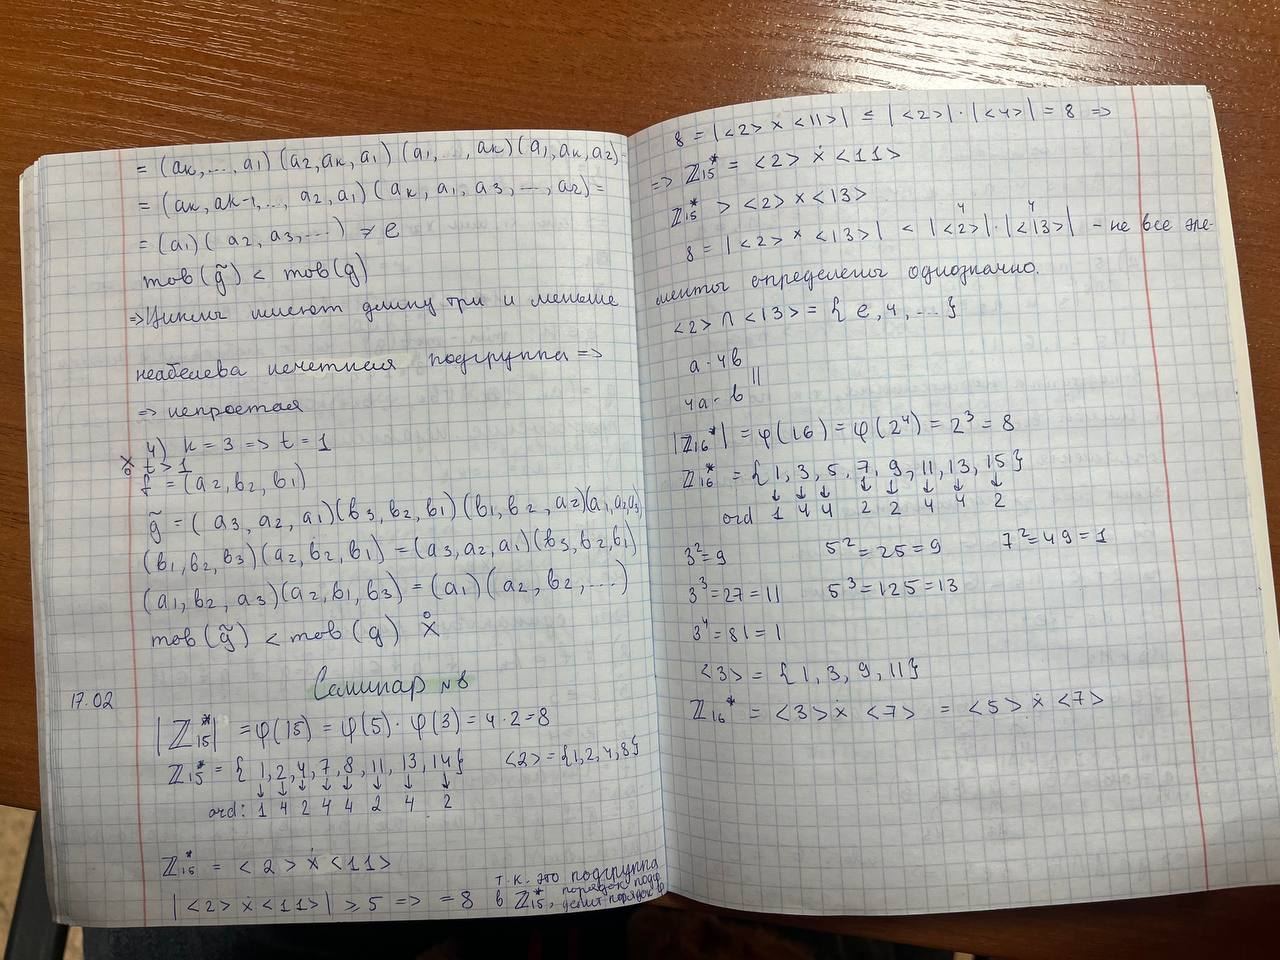 = (aₖ,...,a₁)(a₂,aₖ,a₁)(a₁,...,aₖ)(a₁,aₖ,a₂)=
= (aₖ,aₖ₋₁,..., a₂,a₁)(aₖ,a₁,a₃,...,a₂)=
= (a₁)(a₂,a₃,...) ≠ e
mov(g̃) < mov(g)
=> Циклы имеют длину три и меньше
неабелева нечетная подгруппа =>
=> непростая
4) k = 3 => t = 1
t > 1
f = (a₂,b₂,b₁)
g̃ = (a₃,a₂,a₁)(b₃,b₂,b₁)(b₁,b₂,a₂)(a₁,a₂,a₃)
(b₁,b₂,b₃)(a₂,b₂,b₁) = (a₃,a₂,a₁)(b₃,b₂,b₁)
(a₁,b₂,a₃)(a₂,b₁,b₃) = (a₁)(a₂,b₂,...)
mov(g̃) < mov(g)
Семинар №8
17.02
|ℤ₁₅*| = φ(15) = φ(5)·φ(3) = 4·2=8
ℤ₁₅* = {1,2,4,7,8,11,13,14} <2> = {1,2,4,8}
↓ ↓ ↓ ↓ ↓ ↓ ↓ ↓
ord: 1 4 2 4 4 2 4 2
ℤ₁₅* = <2> ẋ <11>
|<2> ẋ <11>| ≥ 5 => = 8 т.к. это подгруппа
в ℤ₁₅*, порядок подгр.
делит порядок гр
8 = |<2> x <11>| ≤ |<2>|·|<4>| = 8 =>
=> ℤ₁₅* = <2> ẋ <11>
ℤ₁₅* > <2> x <13>
4 4
8 = |<2> x <13>| < |<2>|·|<13>| - не все эле-
менты определены однозначно.
<2> ∩ <13> = {e, 4, ...}
a·4b
||
4a·b
|ℤ₁₆*| = φ(16) = φ(2⁴) = 2³ = 8
ℤ₁₆* = {1, 3, 5, 7, 9, 11, 13, 15}
↓ ↓ ↓ ↓ ↓ ↓ ↓ ↓
ord 1 4 4 2 2 4 4 2
3²=9 5²=25=9 7²=49=1
3³=27=11 5³=125=13
3⁴=81=1
<3> = {1, 3, 9, 11}
ℤ₁₆* = <3> ẋ <7> = <5> ẋ <7>